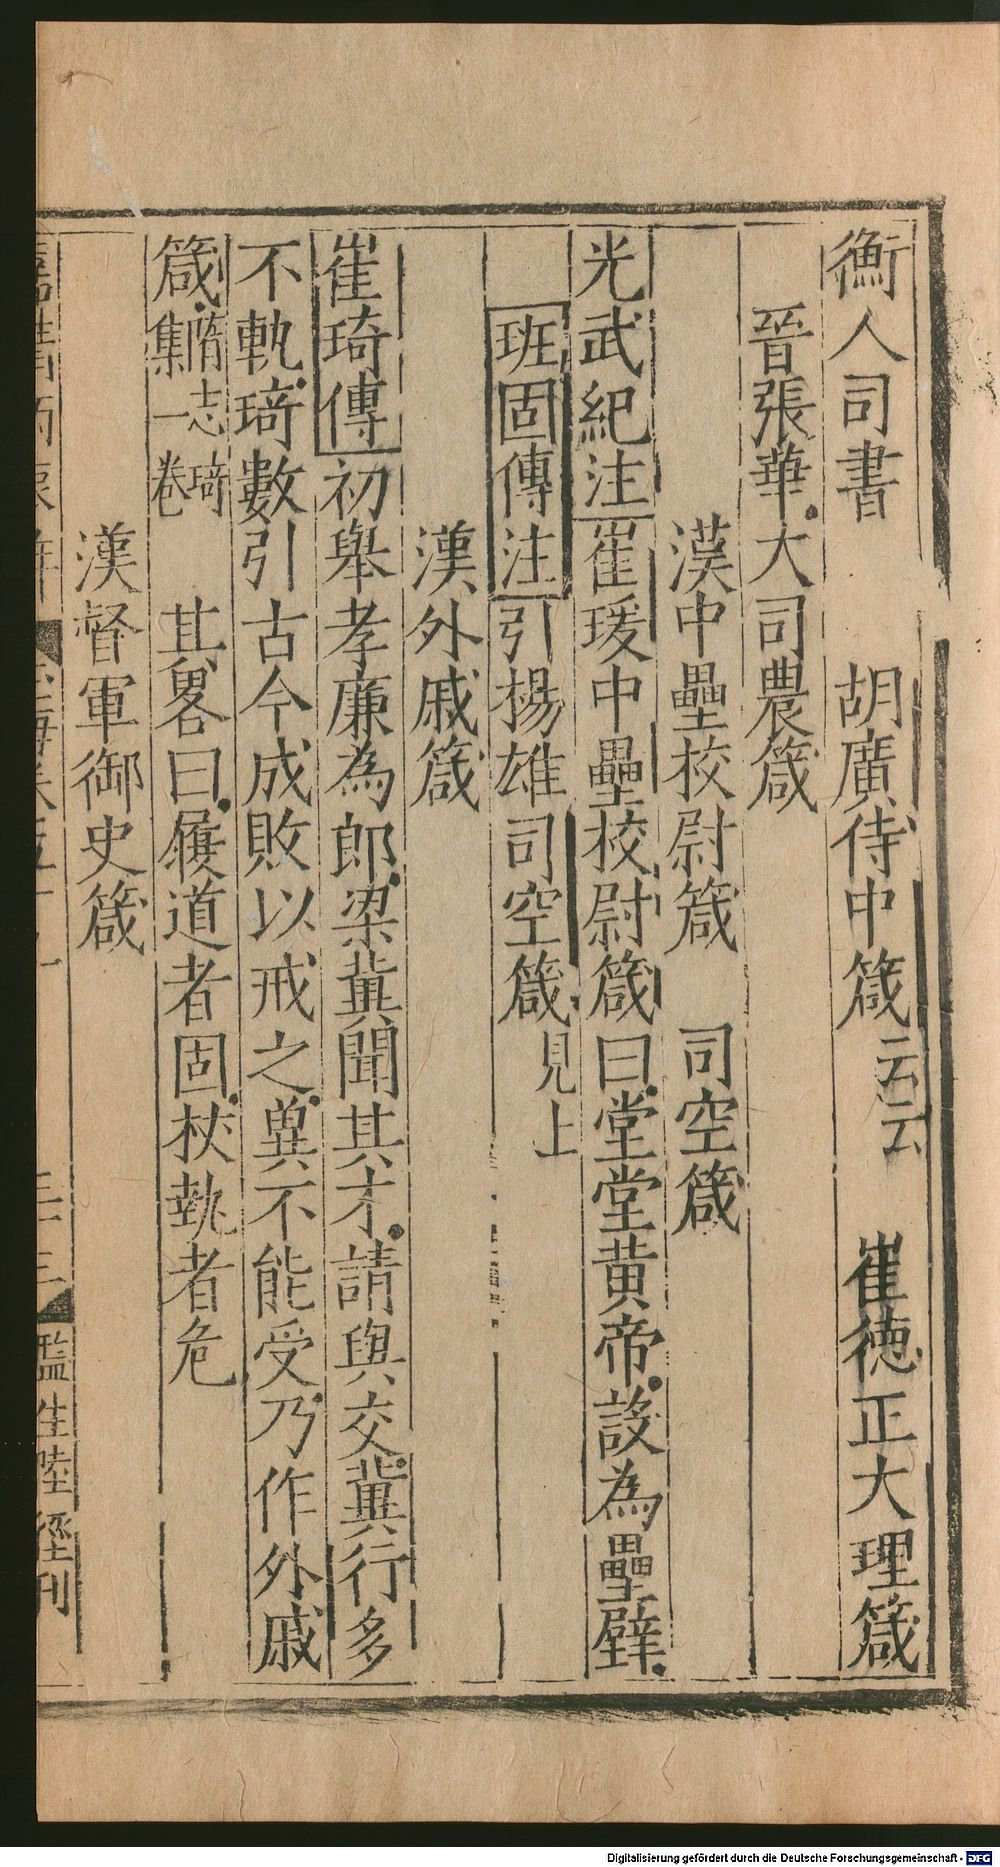 衡人司書　胡廣侍中箴云云　崔德正大理箴
晉張華大司農箴
漢中壘校尉箴　司空箴
光武紀注崔瑗中壘校尉箴曰堂堂黄帝設為壘壁
班固傳注引揚雄司空箴見上
漢外戚箴
崔琦傳初舉孝廉為郎梁冀聞其才請與交冀行多
不軌琦數引古今成敗以戒之冀不能受乃作外戚
箴隋志琦集一卷　其畧曰履道者固杖執者危
漢督軍御史箴
三十三
監生陸徑刊
Digitalisierung gefördert durch die Deutsche Forschungsgemeinschaft - DFG